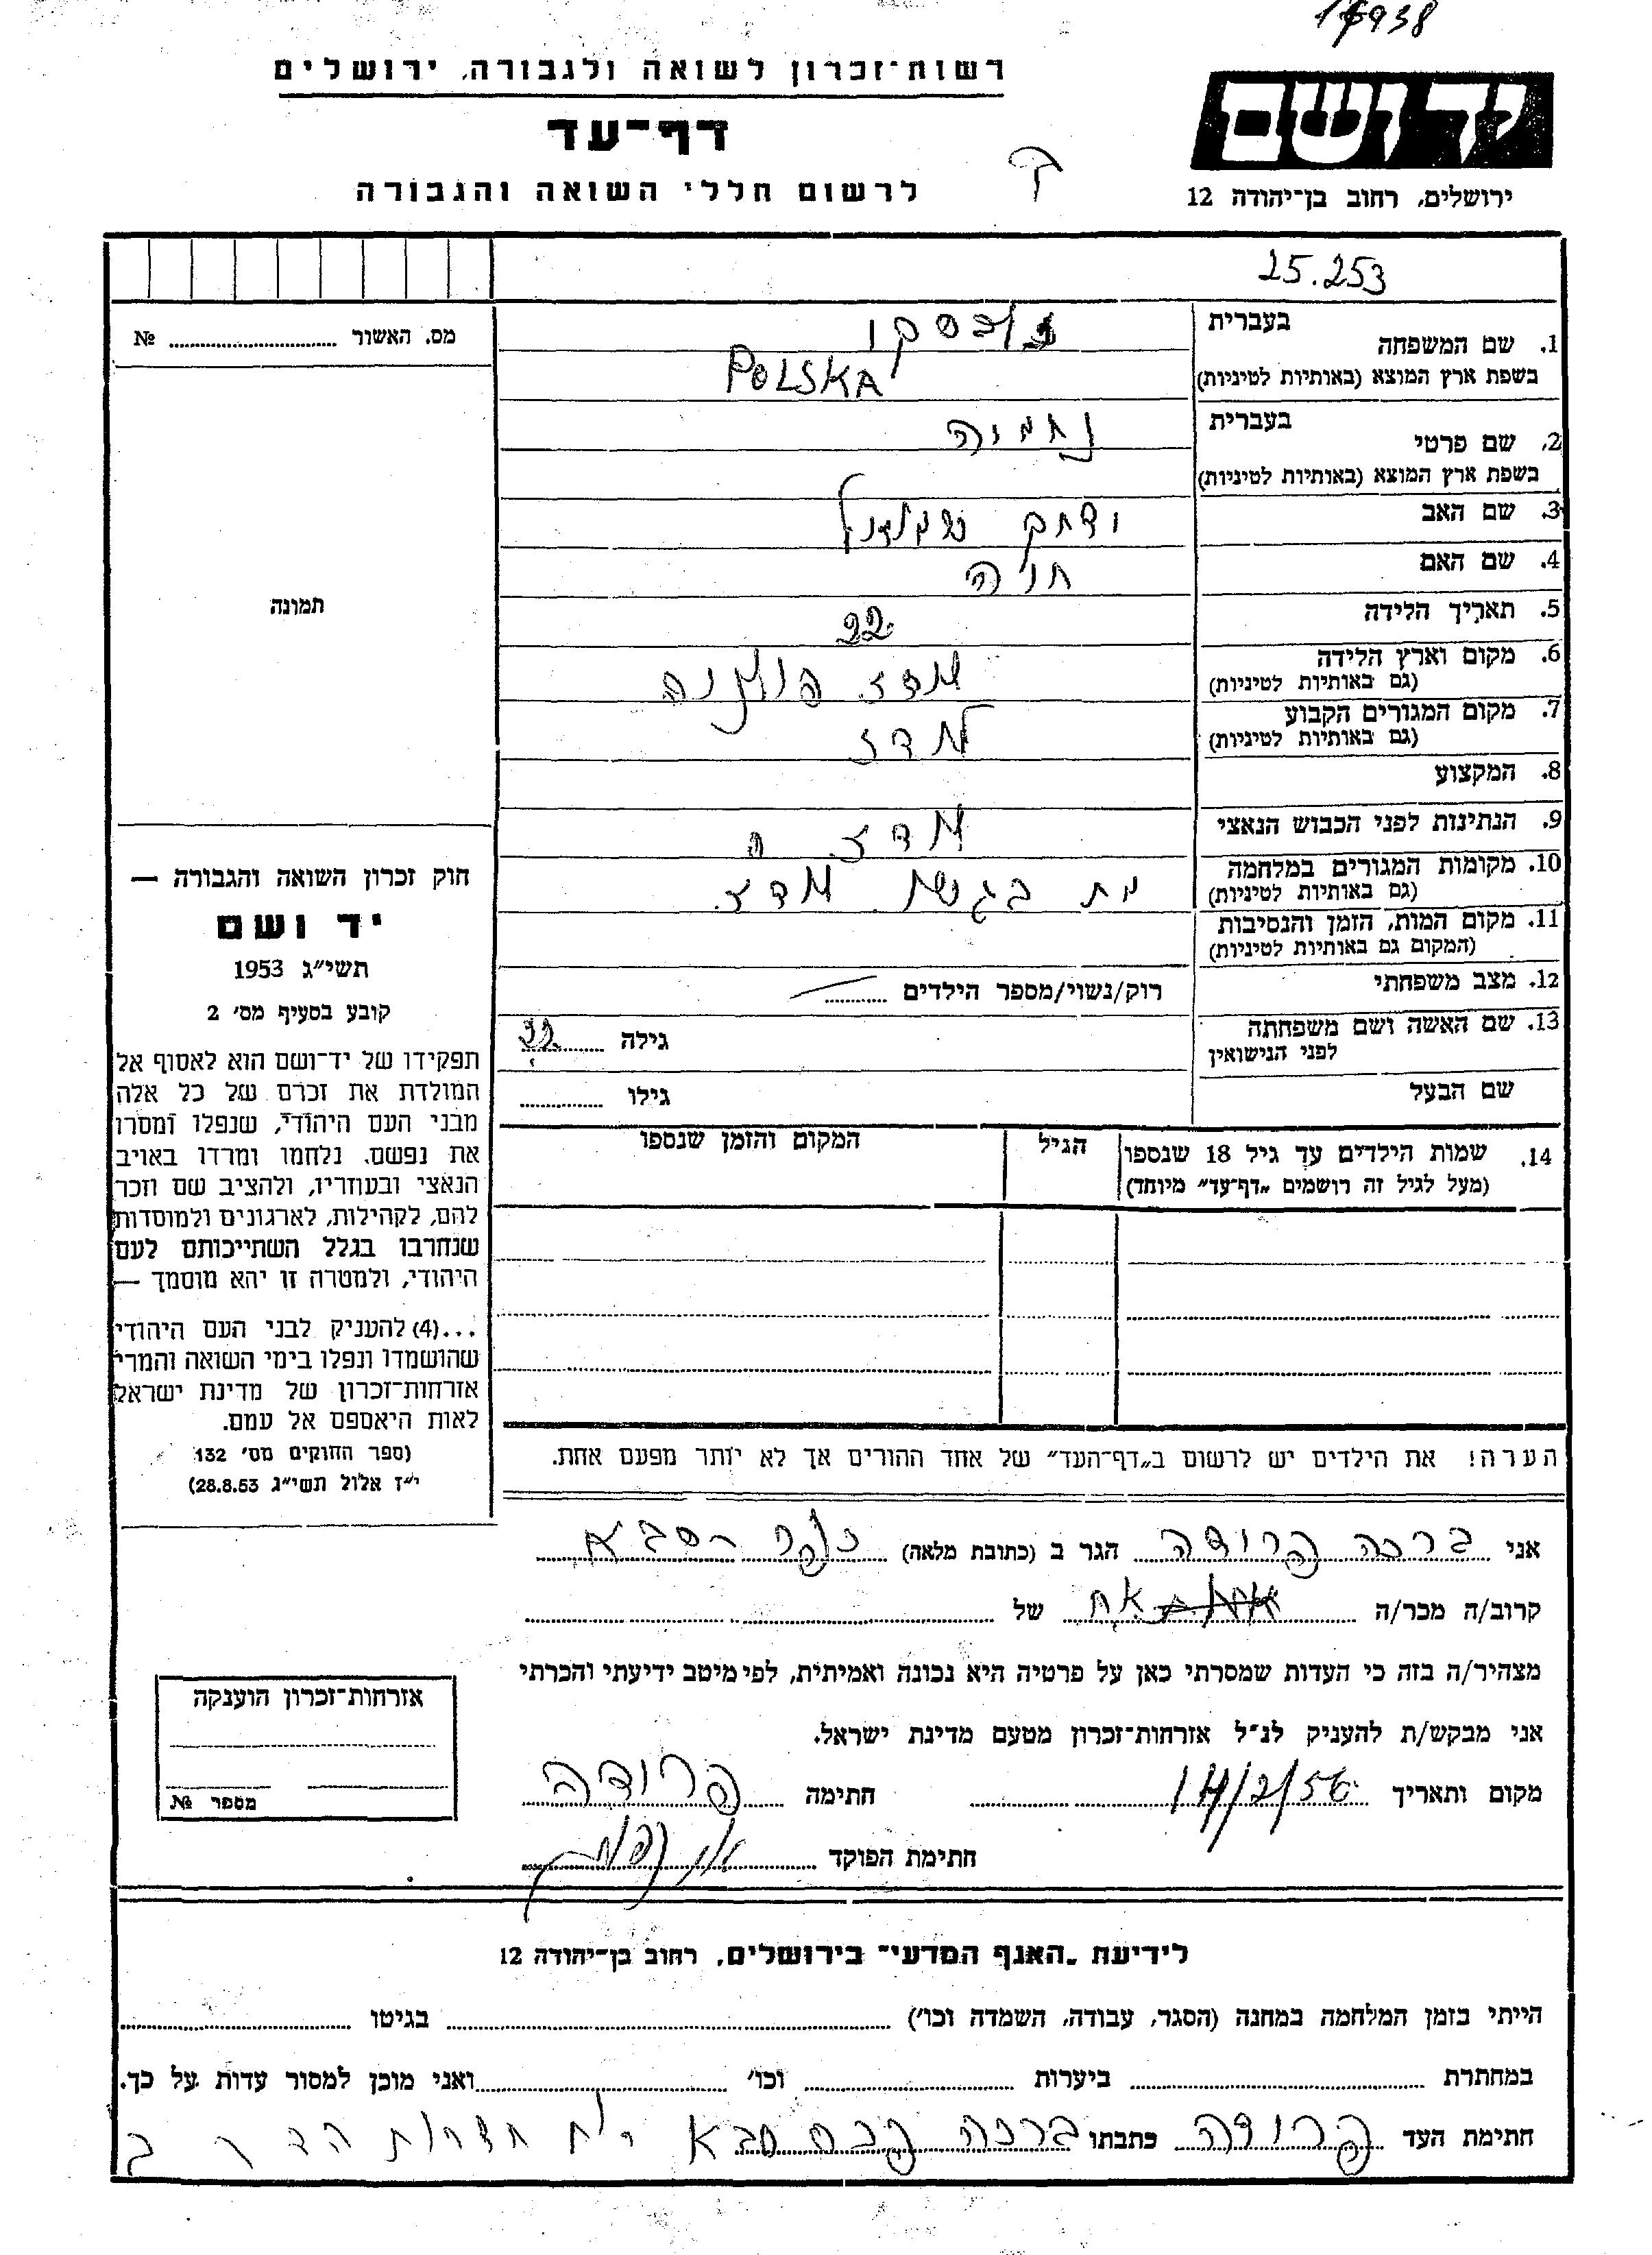 16938
רשות־זכרון לשואה ולגבורה, ירושלים
דף־עד
לרשום חללי השואה והגבורה
יד ושם
ירושלים, רחוב בן־יהודה 12
25.253
מס. האשור ............ №
1. שם המשפחה בעברית
בשפת ארץ המוצא (באותיות לטיניות) POLSKA
2. שם פרטי בעברית נחמיה
בשפת ארץ המוצא (באותיות לטיניות)
3. שם האב
4. שם האם חנ'ה
5. תאריך הלידה 22
6. מקום וארץ הלידה
(גם באותיות לטיניות)
7. מקום המגורים הקבוע
(גם באותיות לטיניות)
8. המקצוע
9. הנתינות לפני הכבוש הנאצי
10. מקומות המגורים במלחמה
(גם באותיות לטיניות)
11. מקום המות, הזמן והנסיבות
(המקום גם באותיות לטיניות)
12. מצב משפחתי רוק/נשוי/מספר הילדים
13. שם האשה ושם משפחתה
לפני הנישואין גילה
שם הבעל גילו
תמונה
חוק זכרון השואה והגבורה —
יד ושם
תשי״ג 1953
קובע בסעיף מס׳ 2
תפקידו של יד־ושם הוא לאסוף אל
המולדת את זכרם של כל אלה
מבני העם היהודי, שנפלו ומסרו
את נפשם, נלחמו ומרדו באויב
הנאצי ובעוזריו, ולהציב שם וזכר
להם, לקהילות, לארגונים ולמוסדות
שנחרבו בגלל השתייכותם לעם
היהודי, ולמטרה זו יהא מוסמך —
...(4) להעניק לבני העם היהודי
שהושמדו ונפלו בימי השואה והמרי
אזרחות־זכרון של מדינת ישראל
לאות היאספם אל עמם.
(ספר החוקים מס׳ 132
י״ז אלול תשי״ג 28.8.53)
14. שמות הילדים עד גיל 18 שנספו הגיל המקום והזמן שנספו
(מעל לגיל זה רושמים „דף־עד״ מיוחד)
הערה! את הילדים יש לרשום ב„דף־העד״ של אחד ההורים אך לא יותר מפעם אחת.
אני ברכה פרודה הגר ב (כתובת מלאה) כפר סבא
קרוב/ה מכר/ה אח של
מצהיר/ה בזה כי העדות שמסרתי כאן על פרטיה היא נכונה ואמיתית, לפי מיטב ידיעתי והכרתי
אני מבקש/ת להעניק לנ״ל אזרחות־זכרון מטעם מדינת ישראל.
מקום ותאריך 14/2/56 חתימה פרודה
חתימת הפוקד
אזרחות־זכרון הוענקה
מספר №
לידיעת „האגף המדעי״ בירושלים, רחוב בן־יהודה 12
הייתי בזמן המלחמה במחנה (הסגר, עבודה, השמדה וכו׳) בגיטו
במחתרת ביערות וכו׳ ואני מוכן למסור עדות על כך.
חתימת העד פרודה כתבתו ברכה כפר סבא